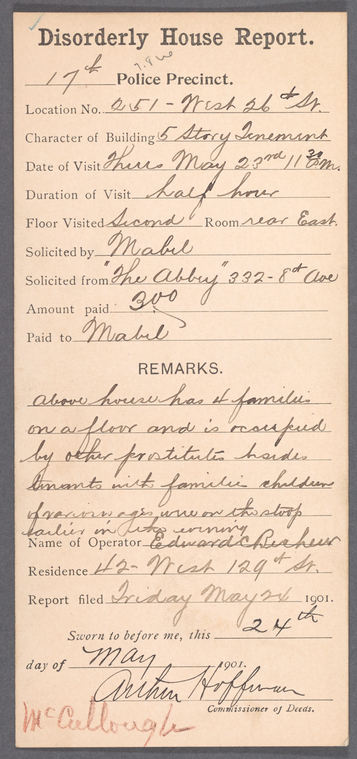 Disorderly House Report.
17th Police Precinct.
Location No. 251 - West 26th St.
Character of Building 5 Story Tenement
Date of Visit Thurs May 23rd 11 30 P.M.
Duration of Visit half hour
Floor Visited Second Room rear East.
Solicited by Mabel
Solicited from "The Abbey" 332 - 8th Ave
Amount paid 3.00
Paid to Mabel
REMARKS.
Above house has 4 families
on a floor and is occupied
by other prostitutes besides
tenants with families children
of various ages, were on the stoop
earlier in the evening
Name of Operator Edward C
Residence 42 - West 129th St.
Report filed Friday May 24 1901.
Sworn to before me, this 24th
day of May 1901.
Arthur Hoffman
Commissioner of Deeds.
McCullough